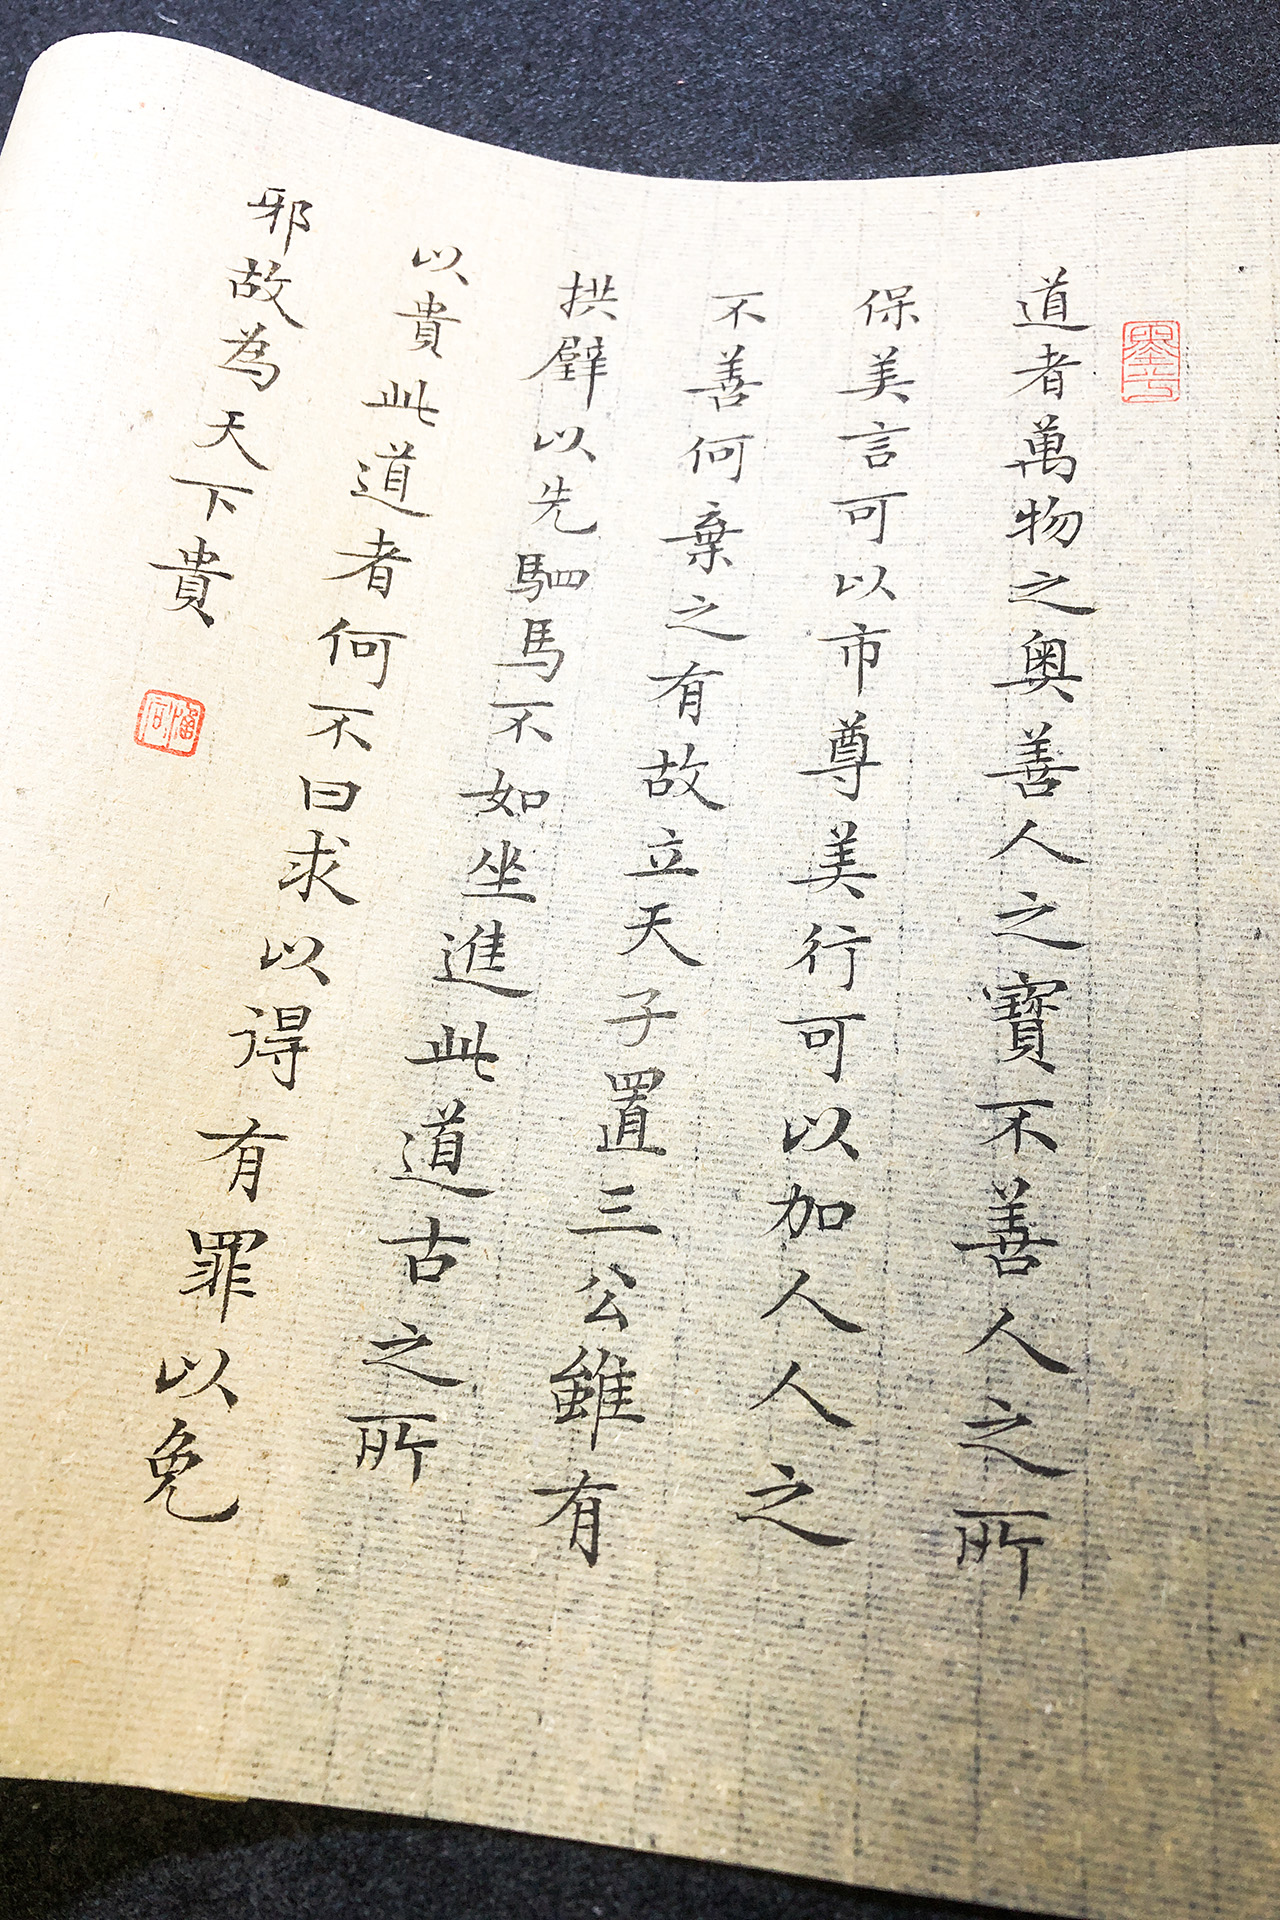 道者萬物之奧善人之寶不善人之所
保美言可以市尊美行可以加人人之
不善何棄之有故立天子置三公雖有
拱璧以先駟馬不如坐進此道古之所
以貴此道者何不曰求以得有罪以免
邪故為天下貴